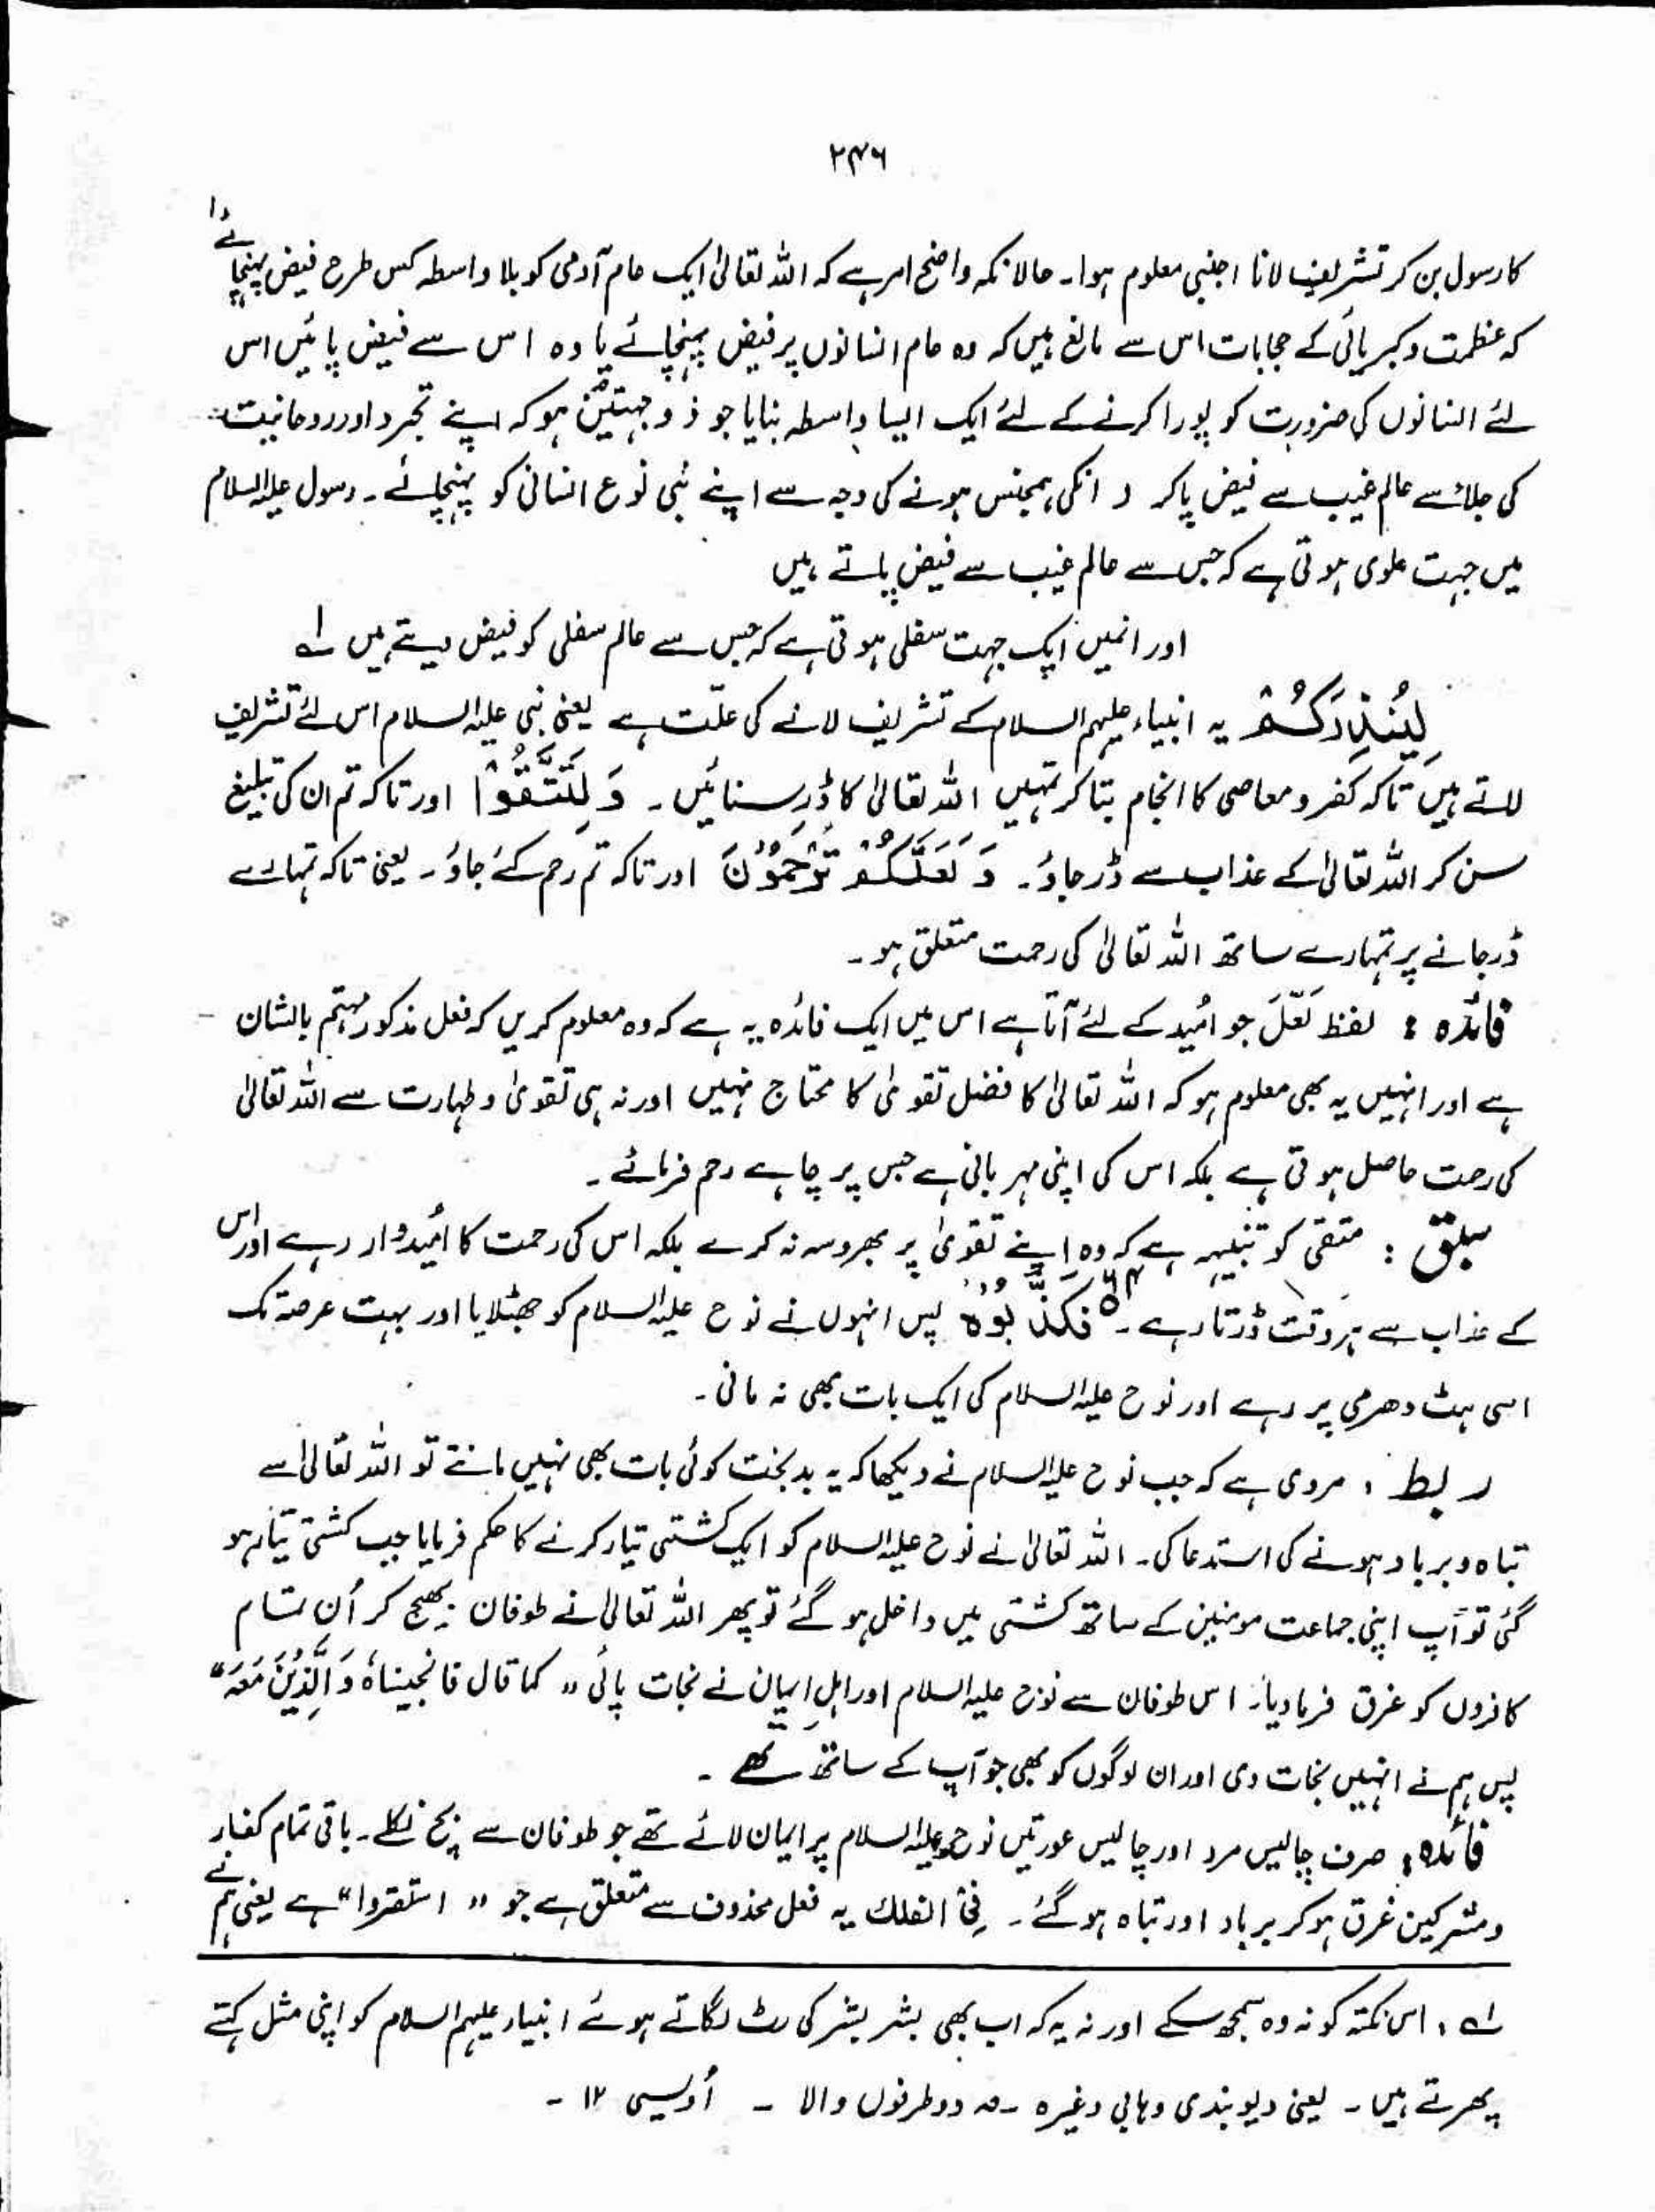 ۲۴۶
کا رسول بن کر تشریف لانا اجنبی معلوم ہوا۔ حالانکہ واضح امر ہے کہ اللہ تعالیٰ ایک عام آدمی کو بلا واسطہ کس طرح فیض پہنچائے
کہ عظمت و کبریائی کے حجابات اس سے مانع ہیں کہ وہ عام انسانوں پر فیض پہنچائے یا وہ اس سے فیض پائیں اس
لئے انسانوں کی ضرورت کو پورا کرنے کے لئے ایک ایسا واسطہ بنایا جو ذو جہتینؓ ہو کہ اپنے تجرد اور روحانیت
کی جلاء سے عالم غیب سے فیض پا کر و انکی ہمجنس ہونے کی وجہ سے اپنے بنی نوع انسانی کو پہنچائے۔ رسول علیہ السلام
میں جہت علوی ہوتی ہے کہ جس سے عالم غیب سے فیض پاتے ہیں
اور انمیں ایک جہت سفلی ہوتی ہے کہ جس سے عالم سفلی کو فیض دیتے ہیں لہ
لِیُنْذِرَکُمْ یہ انبیاء علیہم السلام کے تشریف لانے کی علّت ہے یعنی نبی علیہ السلام اس لئے تشریف
لاتے ہیں تاکہ کفر و معاصی کا انجام بتا کر تمہیں اللہ تعالیٰ کا ڈر سنائیں۔ وَلِتَتَّقُوْا اور تاکہ تم ان کی تبلیغ
سن کر اللہ تعالیٰ کے عذاب سے ڈر جاؤ۔ وَلَعَلَّکُمْ تُرْحَمُوْنَ اور تاکہ تم رحم کئے جاؤ۔ یعنی تاکہ تمہارے
ڈر جانے پر تمہارے ساتھ اللہ تعالیٰ کی رحمت متعلق ہو۔
فائدہ : لفظ لَعَلَّ جو اُمید کے لئے آتا ہے اس میں ایک فائدہ یہ ہے کہ وہ معلوم کریں کہ فعل مذکور مہتم بالشان
ہے اور انہیں یہ بھی معلوم ہو کہ اللہ تعالیٰ کا فضل تقویٰ کا محتاج نہیں اور نہ ہی تقویٰ و طہارت سے اللہ تعالیٰ
کی رحمت حاصل ہوتی ہے بلکہ اس کی اپنی مہربانی ہے جس پر چاہے رحم فرمائے۔
سبق : متقی کو تنبیہہ ہے کہ وہ اپنے تقویٰ پر بھروسہ نہ کرے بلکہ اس کی رحمت کا اُمیدوار رہے اور اس
کے عذاب سے ہر وقت ڈرتا رہے۔ فَکَذَّبُوْهُ پس انہوں نے نوح علیہ السلام کو جھٹلایا اور بہت عرصہ تک
اسی ہٹ دھرمی پر رہے اور نوح علیہ السلام کی ایک بات بھی نہ مانی۔
ربط : مروی ہے کہ جب نوح علیہ السلام نے دیکھا کہ یہ بدبخت کوئی بات بھی نہیں مانتے تو اللہ تعالیٰ سے
تباہ و برباد ہونے کی استدعا کی۔ اللہ تعالیٰ نے نوح علیہ السلام کو ایک کشتی تیار کرنے کا حکم فرمایا جب کشتی تیار ہو
گئی تو آپ اپنی جماعت مومنین کے ساتھ کشتی میں داخل ہو گئے تو پھر اللہ تعالیٰ نے طوفان بھیج کر اُن تمام
کافروں کو غرق فرما دیا۔ اس طوفان سے نوح علیہ السلام اور اہلِ ایمان نے نجات پائی ,, کما قال فانجیناہُ وَالَّذِیْنَ مَعَہٗ“
پس ہم نے انہیں نجات دی اور ان لوگوں کو بھی جو آپ کے ساتھ تھے۔
فائدہ : صرف چالیس مرد اور چالیس عورتیں نوح علیہ السلام پر ایمان لائے تھے جو طوفان سے بچ نکلے۔ باقی تمام کفار
و مشرکین غرق ہو کر برباد اور تباہ ہو گئے۔ فِی الفلک یہ فعل محذوف سے متعلق ہے جو ,, استقروا“ ہے یعنی ہم نے
لہ : اس نکتہ کو نہ وہ سمجھ سکے اور نہ یہ کہ اب بھی بشر بشر کی رٹ لگاتے ہوئے انبیاء علیہم السلام کو اپنی مثل کہتے
پھرتے ہیں۔ یعنی دیوبندی وہابی وغیرہ ۔ دو طرفوں والا ۔ اُویسی ۱۲ ۔